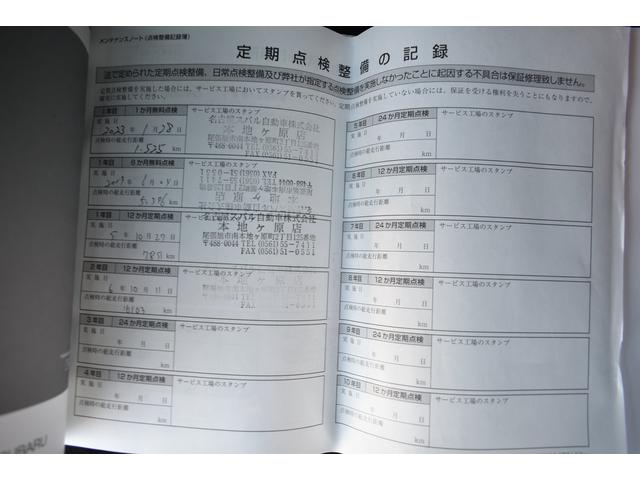 メンテナンスノート(点検整備記録簿)
定期点検整備の記録
法で定められた定期点検整備、日常点検整備及び弊社が指定する点検整備を実施しなかったことに起因する不具合は保証修理致しません。
定期点検整備を実施した場合には、サービス工場においてスタンプを貰ってください。定期点検整備を実施していない場合には、保証を受ける権利を失うことにもなりますので、
確実に実施してください。
1年目 1か月無料点検
サービス工場のスタンプ
実施日
2023年1月28日
点検時の総走行距離
1,525 km
名古屋スバル自動車株式会社
本地ヶ原店
尾張旭市南本地ヶ原町2丁目125番地
〒488-0044 TEL (0561)55-7411
FAX (0561)51-0551
1年目 6か月無料点検
サービス工場のスタンプ
実施日
年 月 日
点検時の総走行距離
km
1年目 12か月定期点検
サービス工場のスタンプ
実施日
5年10月27日
点検時の総走行距離
km
名古屋スバル自動車株式会社
本地ヶ原店
尾張旭市南本地ヶ原町2丁目125番地
〒488-0044 TEL (0561)55-7411
FAX (0561)51-0551
2年目 12か月定期点検
サービス工場のスタンプ
実施日
6年10月11日
点検時の総走行距離
16103 km
3年目 24か月定期点検
サービス工場のスタンプ
実施日
年 月 日
点検時の総走行距離
km
4年目 12か月定期点検
サービス工場のスタンプ
実施日
年 月 日
点検時の総走行距離
km
5年目 24か月定期点検
サービス工場のスタンプ
実施日
年 月 日
点検時の総走行距離
km
6年目 12か月定期点検
サービス工場のスタンプ
実施日
年 月 日
点検時の総走行距離
km
7年目 24か月定期点検
サービス工場のスタンプ
実施日
年 月 日
点検時の総走行距離
km
8年目 12か月定期点検
サービス工場のスタンプ
実施日
年 月 日
点検時の総走行距離
km
9年目 24か月定期点検
サービス工場のスタンプ
実施日
年 月 日
点検時の総走行距離
km
10年目 12か月定期点検
サービス工場のスタンプ
実施日
年 月 日
点検時の総走行距離
km
SUBARU